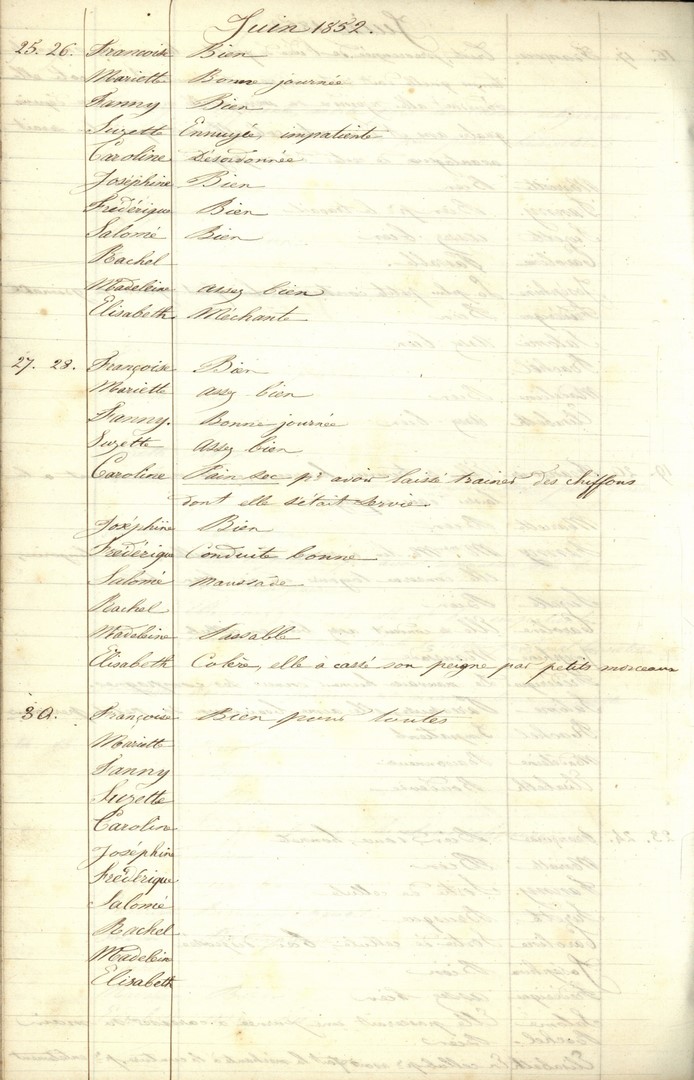 Juin 1852.
25. 26. Francoise Bien
Mariette Bonne journée
Fanny Bien
Suzette Ennuyée, impatiente
Caroline Désordonnée
Joséphine Bien
Frédérique Bien
Salomé Bien
Rachel
Madeleine assez bien
Elisabeth Méchante
27. 28. Françoise Bien
Mariette assez bien
Fanny. Bonne journée
Suzette assez bien
Caroline Pain sec pr avoir laissé trainer des chiffons
dont elle s'était servie.
Joséphine Bien
Frédérique Conduite bonne
Salomé maussade
Rachel
Madeleine Passable
Elisabeth Colère, elle à cassé son peigne par petits morceaux
30. Françoise Bien pour toutes
Mariette
Fanny
Suzette
Caroline
Joséphine
Frédérique
Salomé
Rachel
Madeleine
Elisabeth